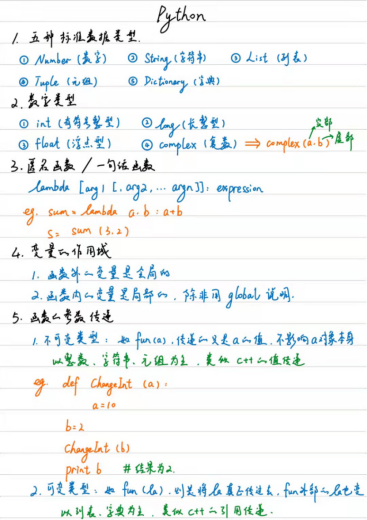 Python
1. 五种标准数据类型.
① Number (数字) ② String (字符串) ③ List (列表)
④ Tuple (元组) ⑤ Dictionary (字典)
2. 数字类型
① int (有符号整型) ② long (长整型) 实部
③ float (浮点型) ④ complex (复数) ⇒ complex (a.b) 虚部
3. 匿名函数 / 一句话函数
lambda [arg1 [, arg2, ... argn]]: expression
eg. sum = lambda a.b : a+b
s = sum (3.2)
4. 变量的作用域
1. 函数外的变量是全局的
2. 函数内的变量是局部的, 除非用 global 说明.
5. 函数的参数传递
1. 不可变类型: 如 fun(a), 传递的只是a的值, 不影响a对象本身
以整数、字符串、元组为主, 类似 c++ 的值传递
eg. def ChangeInt (a):
a=10
b=2
ChangeInt (b)
print b # 结果为2.
2. 可变类型: 如 fun (la), 则是将la真正传过去, fun外部的la也变
以列表、字典为主, 类似 c++ 的引用传递.